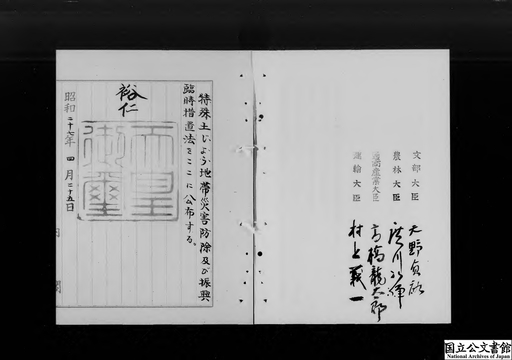 文部大臣 天野貞祐
農林大臣 廣川弘禅
通商産業大臣 高橋龍太郎
運輸大臣 村上義一
特殊土じよう地帯災害防除及び振興
臨時措置法をここに公布する。
裕仁
天皇
御璽
昭和二十七年四月二十五日
内閣
国立公文書館
National Archives of Japan